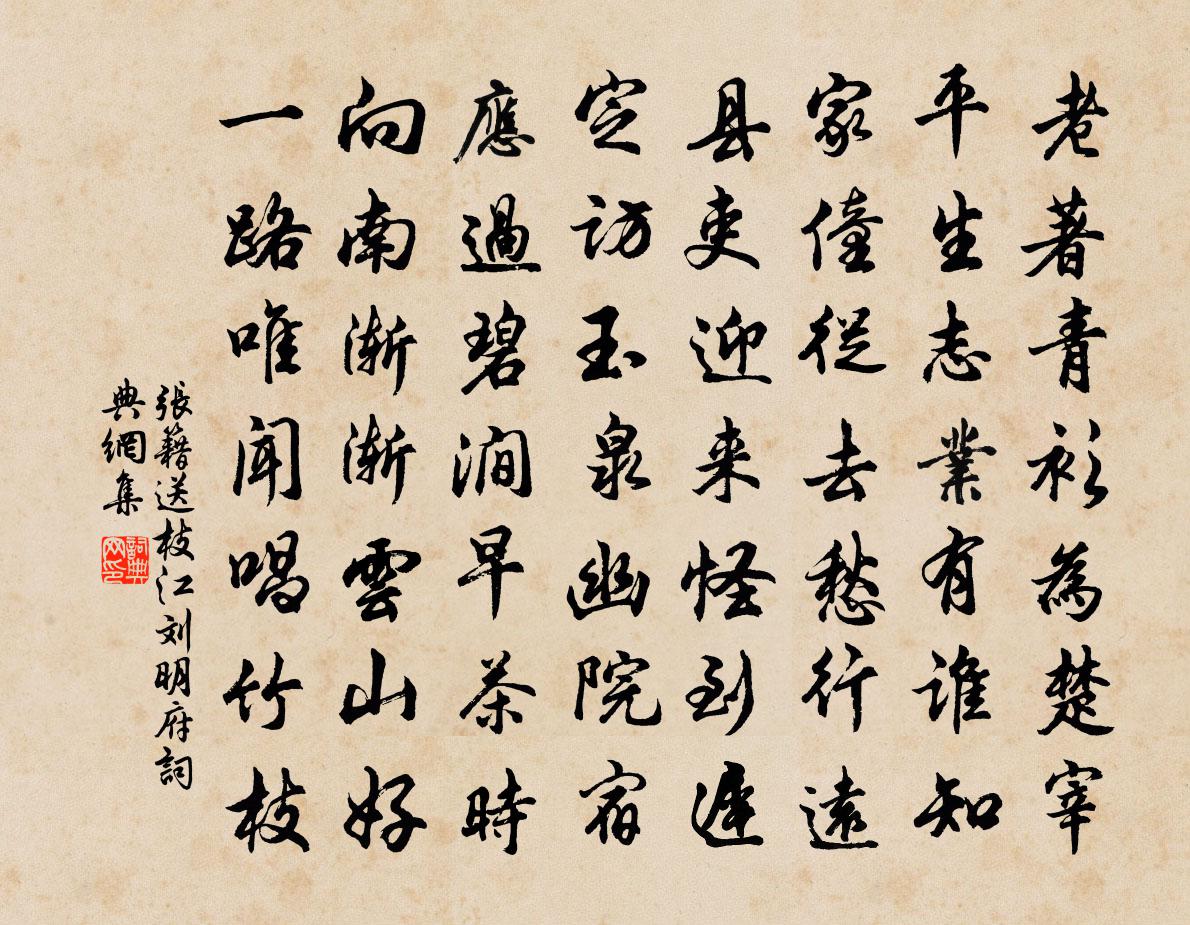 老著青衫為楚宰
平生志業有誰知
家僮從去愁行遠
县吏迎来怪到遲
定訪玉泉幽院宿
應過碧澗早茶時
向南漸漸雲山好
一路唯聞唱竹枝
張籍送枝江刘明府詞
典網集
詞典网印